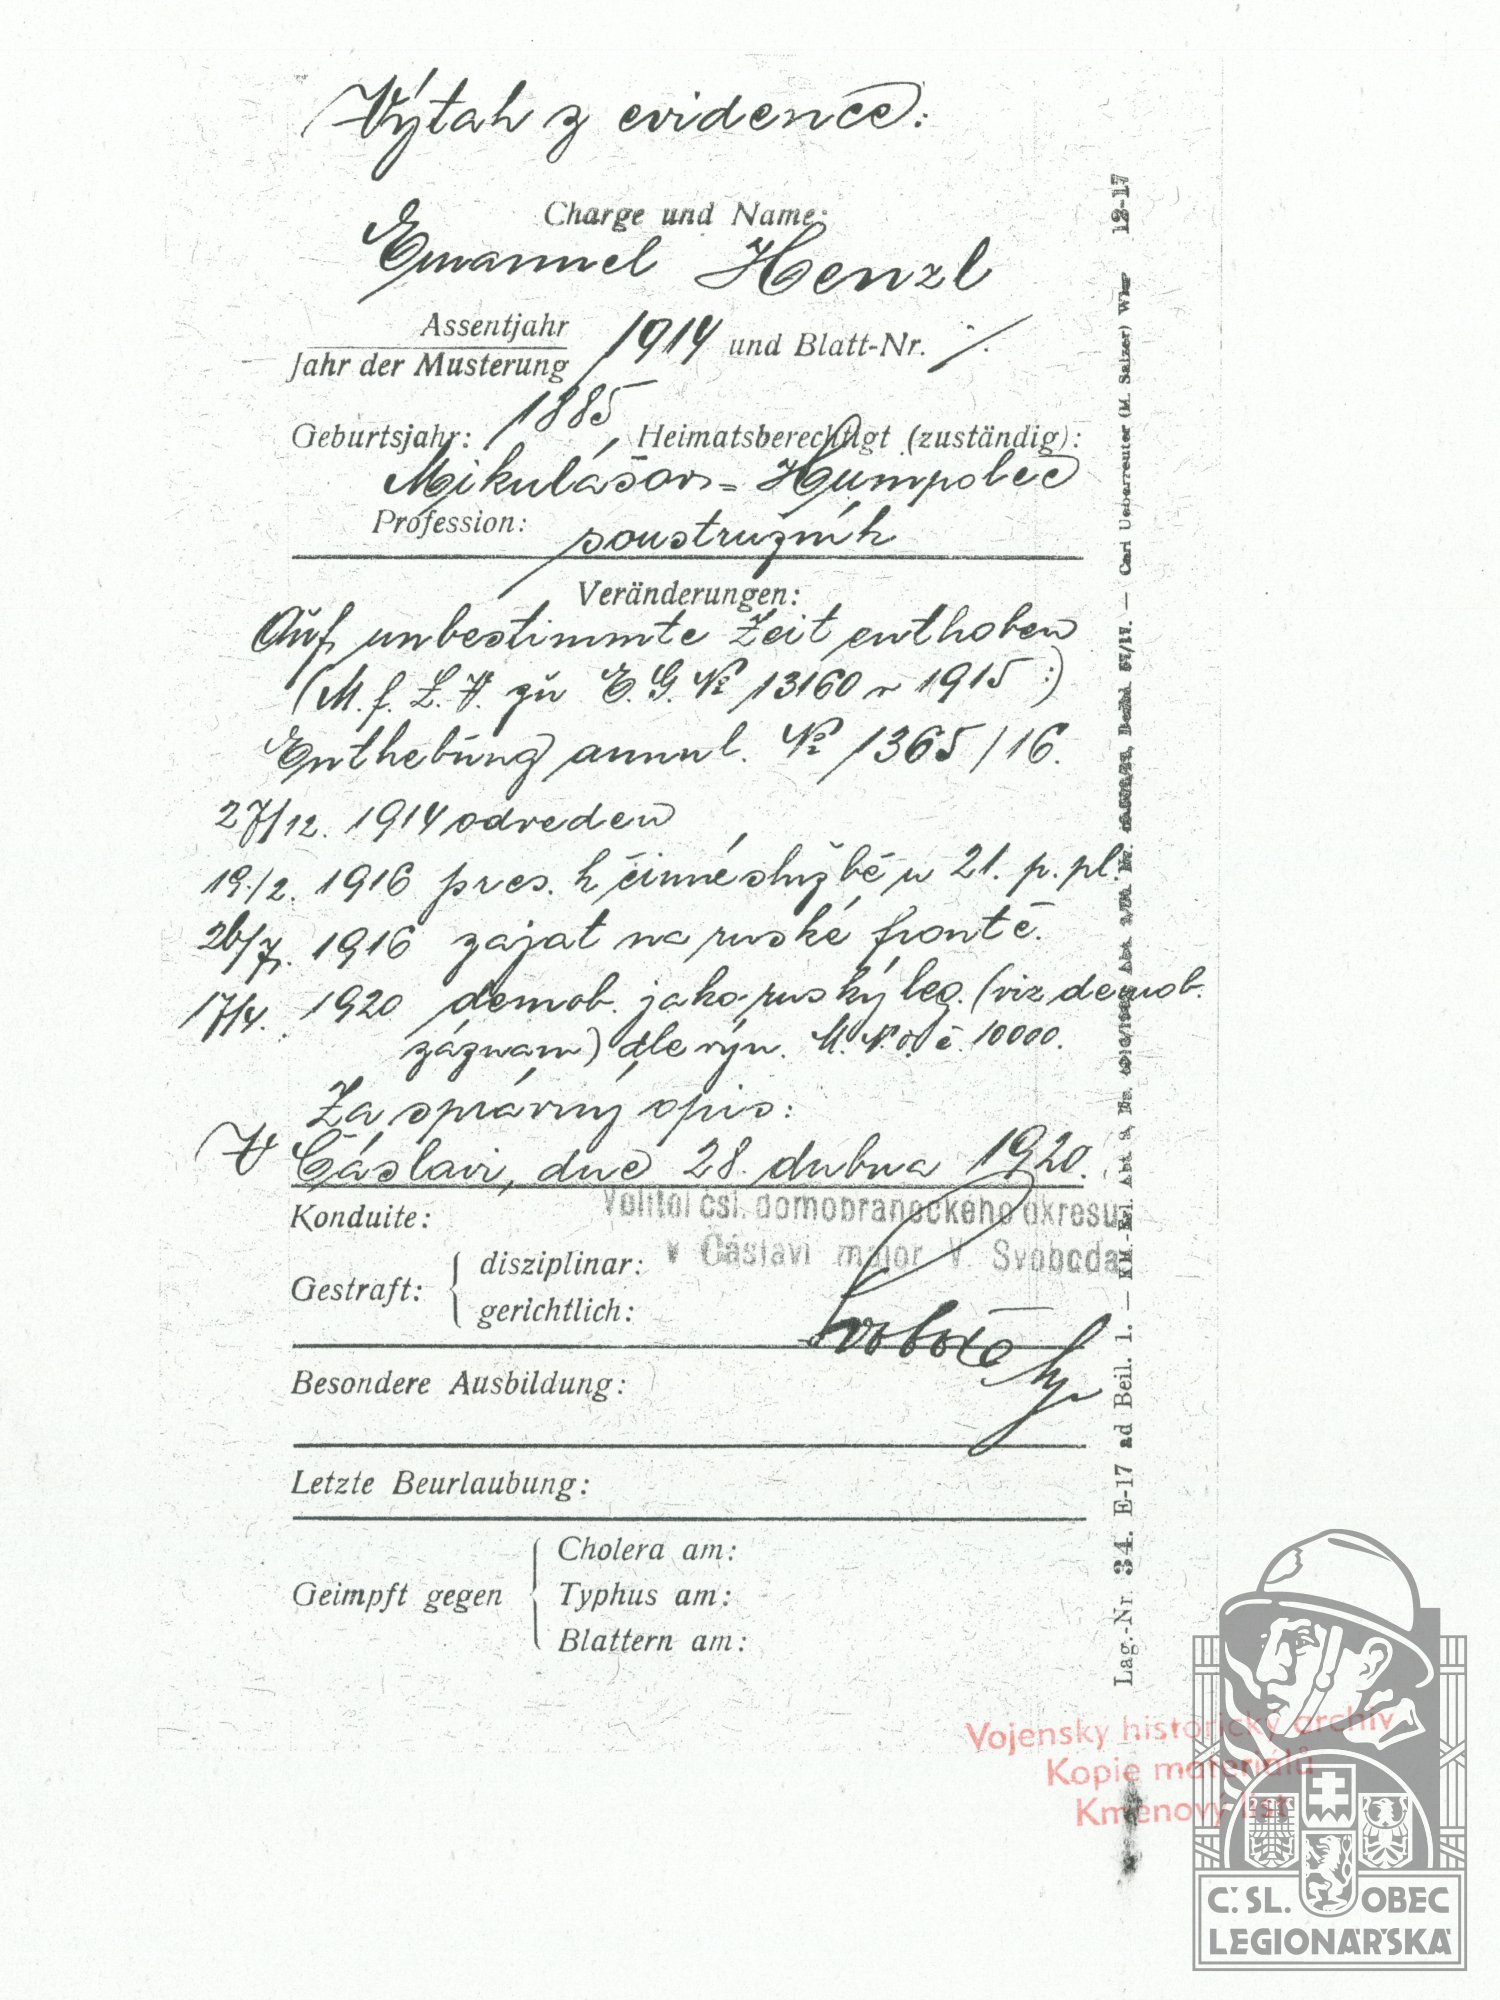 Výtah z evidence:
Charge und Name:
Emanuel Henzl
Assentjahr
Jahr der Musterung
1914 und Blatt-Nr. ·/.
Geburtsjahr: 1885 Heimatsberechtigt (zuständig):
Mikulášov = Humpolec
Profession: soustružník
Veränderungen:
Auf unbestimmte Zeit enthoben
(M. f. L. V. zu E. G. № 13160 v 1915:)
Enthebung annul. № 1365/16.
27/12. 1914 odveden
19./2. 1916 pres. k činné službě u 21. p. pl.
26/7. 1916 zajat na ruské frontě.
17/4. 1920 demob. jako ruský leg. (viz demob.
záznam) dle výn. M. N. O. č. 10000.
Za správný opis:
V Čáslavi, dne 28. dubna 1920.
Velitel čsl. domobraneckého okresu
v Čáslavi major V. Svoboda
Konduite:
Gestraft:
disziplinar:
gerichtlich:
Svoboda
Besondere Ausbildung:
Letzte Beurlaubung:
Geimpft gegen
Cholera am:
Typhus am:
Blattern am:
Lag.-Nr. 34. E-17 ad Beil. 1. — Carl Ueberreuter (M. Salzer) Wien 12-17
Vojenský historický archiv
Kopie materiálů
Kmenový list
Č. SL. OBEC
LEGIONÁŘSKÁ